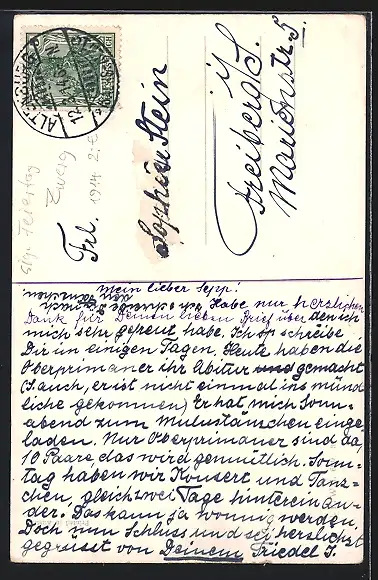 ALTENBURG
12.2.14.
DEUTSCHES REICH
Frl.
Sophie Stein
Freiberg i. S.
Marienstr. 5
Zwerg
1914 2.-€
Mein lieber Sepp!
Habe nur herzlichen
Dank für Deinen lieben Brief über den ich
mich sehr gefreut habe. Ich schreibe
Dir in einigen Tagen. Heute haben die
Oberprimaner ihr Abitur gemacht
(S. auch, er ist nicht einmal ins münd
liche gekommen) Er hat mich Sonn-
abend zum Mulustänzchen einge
laden. Nur Oberprimaner sind da,
10 Paare, das wird gemütlich. Sonn-
tag haben wir Konzert und Tänz-
chen, gleich zwei Tage hintereinan-
der. Das kann ja wonnig werden,
Doch zum Schluss und sei herzlichst
gegrüsst von Deinem Friedel S.